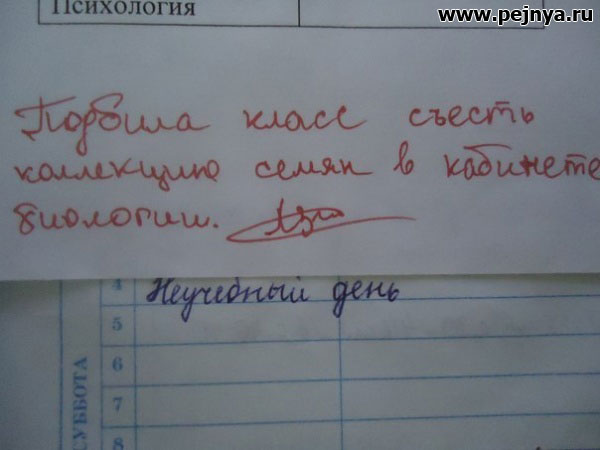 www.pejnya.ru
Психология
Подбила класс съесть
коллекцию семян в кабинете
биологии.
4 Неучебный день
5
6
7
8
СУББОТА